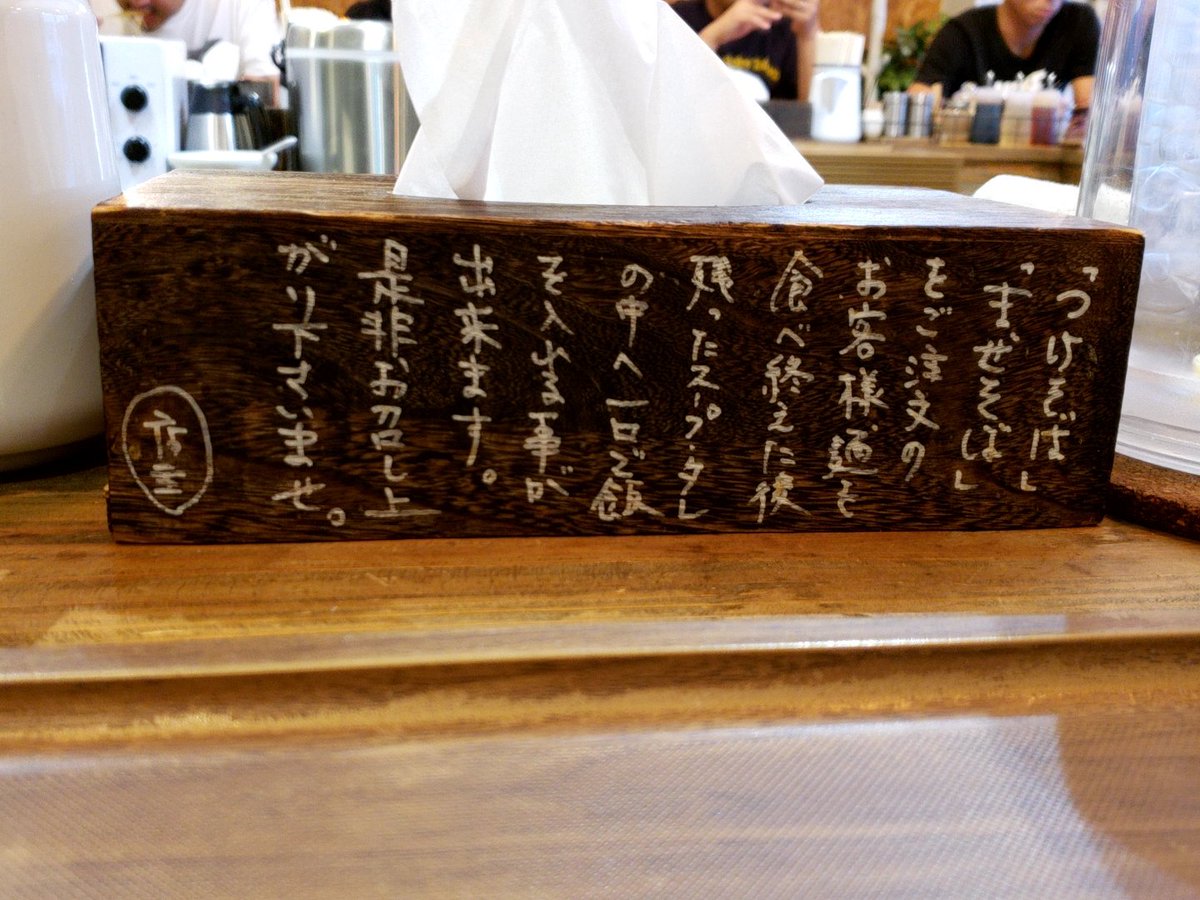 「つけそば」
「まぜそば」
をご注文の
お客様、麺を
食べ終えた後
残ったスープ・タレ
の中へ一口ご飯
を入れる事が
出来ます。
是非お召し上
がり下さいませ。
店主